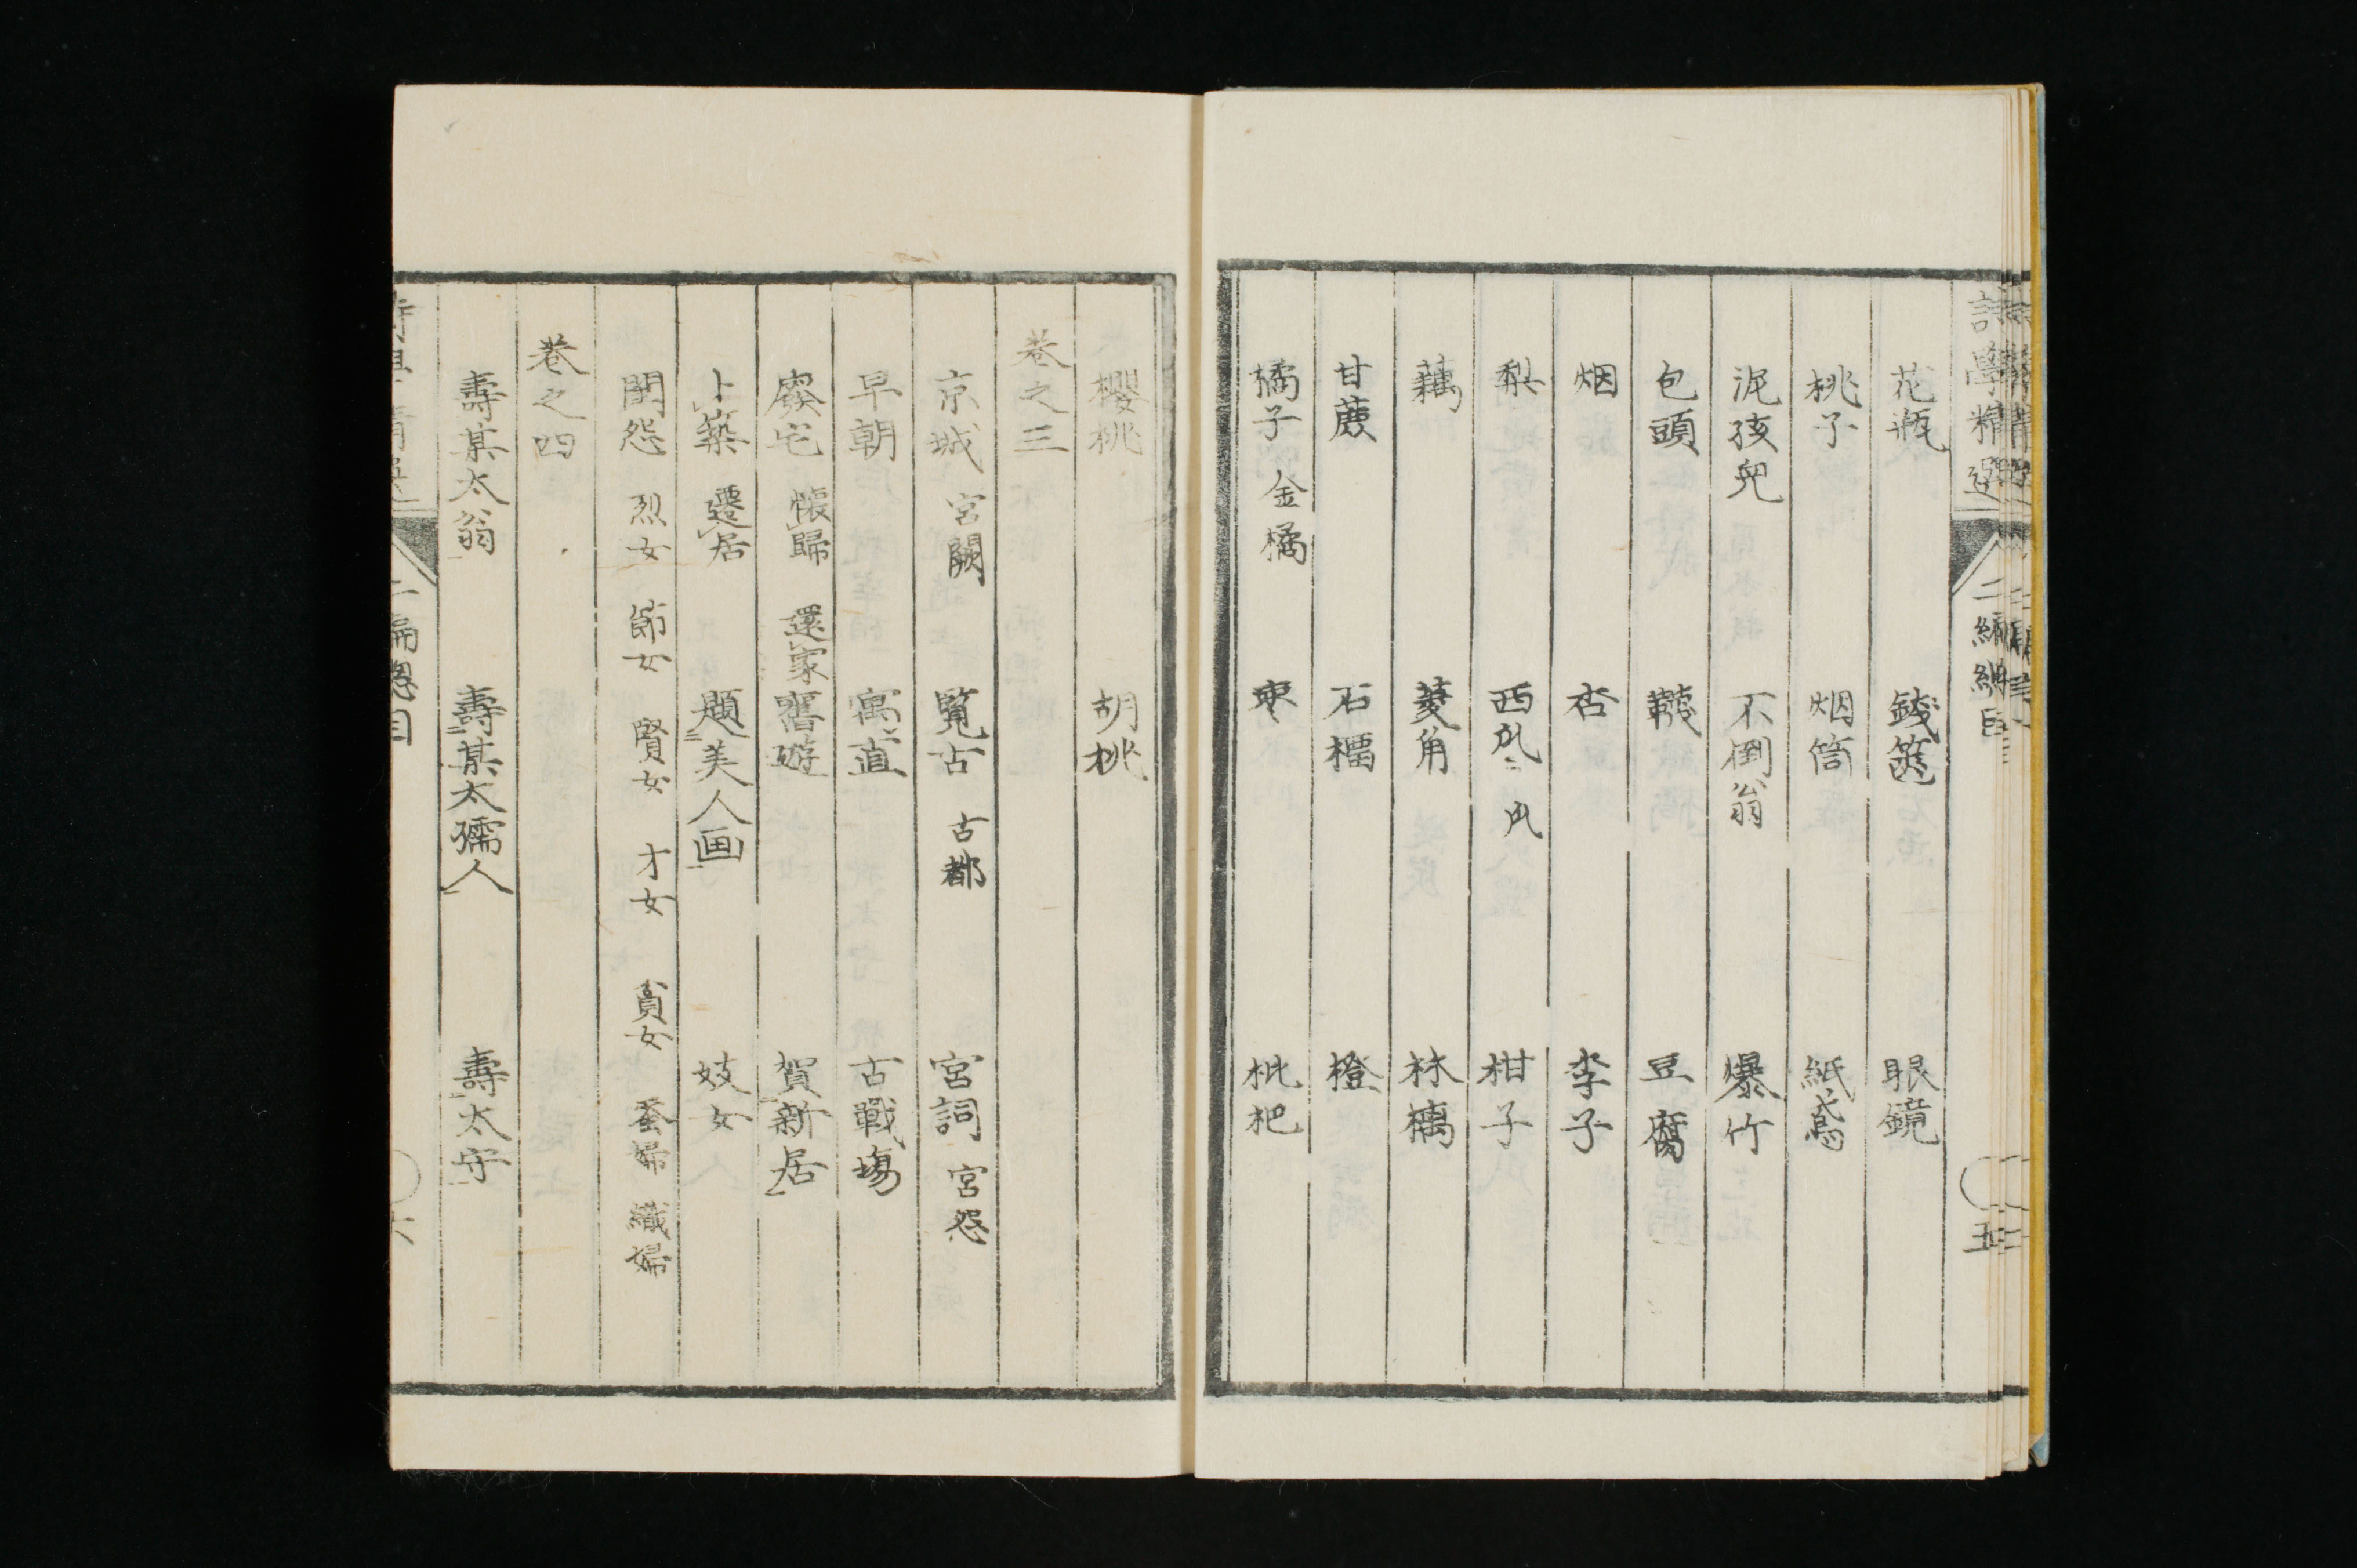 詩學精選 二編緫目 五
花瓶 錢篋 眼鏡
桃子 烟筒 紙鳶
泥孩兒 不倒翁 爆竹
包頭 豆腐
烟 杏 李子
梨 西瓜 瓜 柑子
藕 菱角 林檎
甘蔗 石榴 橙
橘子 金橘 枣 枇杷
櫻桃 胡桃
巻之三
京城 宮闕 覧古 古都 宮詞 宮怨
早朝 寓直 古戰塲
廢宅 懐歸 還家 舊遊 賀新居
卜築 遷居 題美人画 妓女
閨怨 烈女 節女 賢女 才女 貧女 蚕婦 織婦
巻之四
壽某太翁 壽某太孺人 壽太守
二編緫目 六